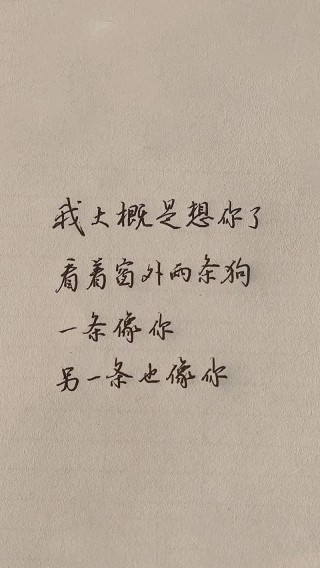 我大概是想你了
看着窗外两条狗
一条像你
另一条也像你